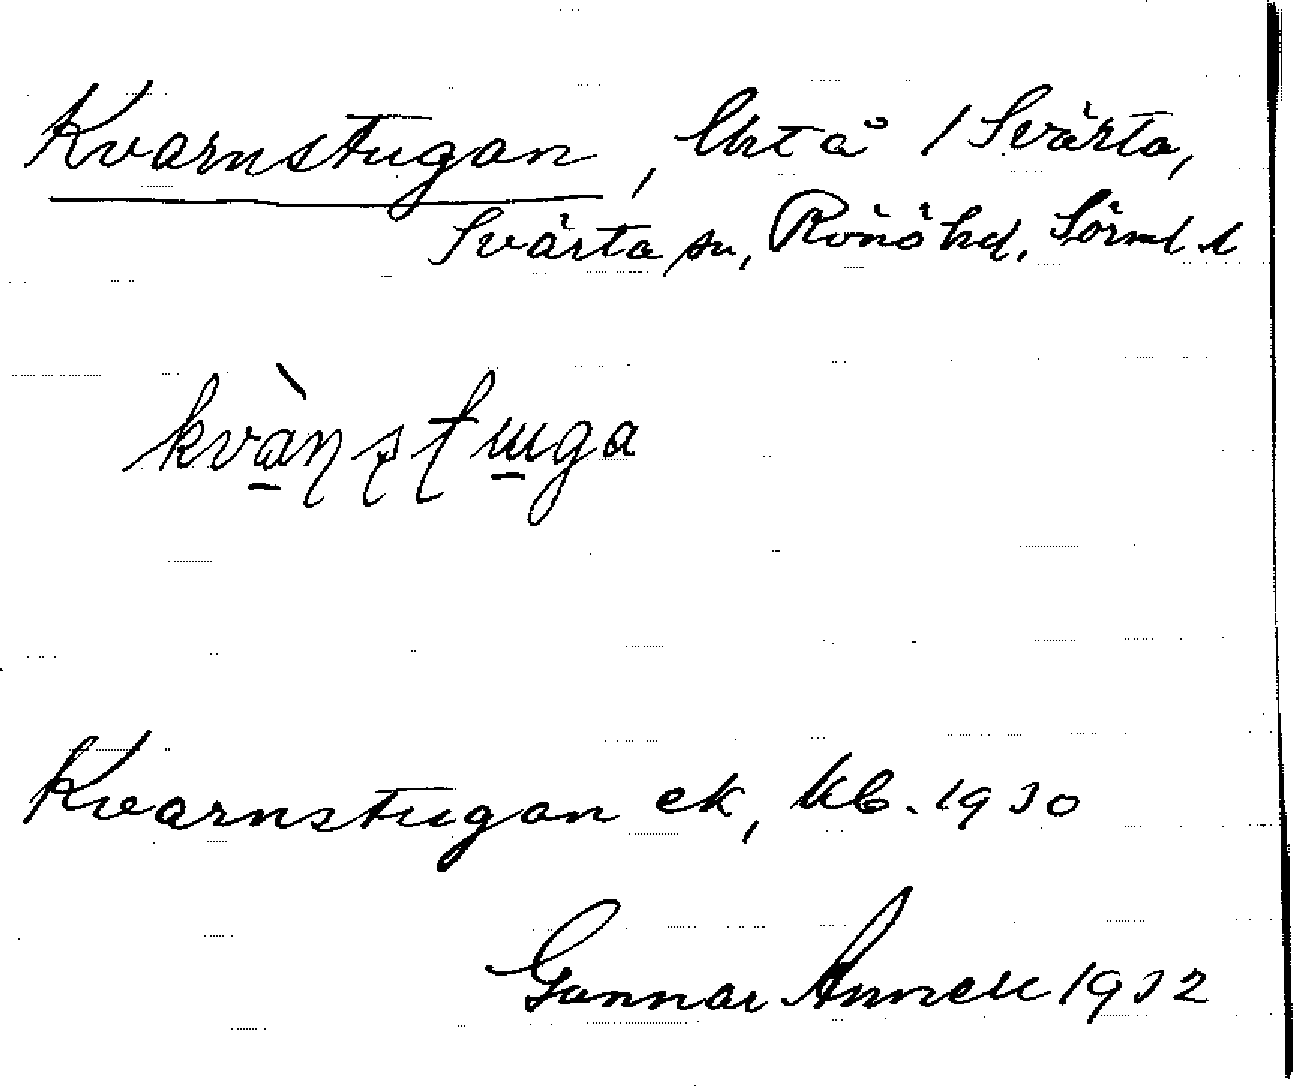 Kvarnstugan, lht å / Svärta,
Svärta sn, Rönö hd, Sörml. l
kvànstuga
Kvarnstugan ek, kb. 1930
Gunnar Annell 1932